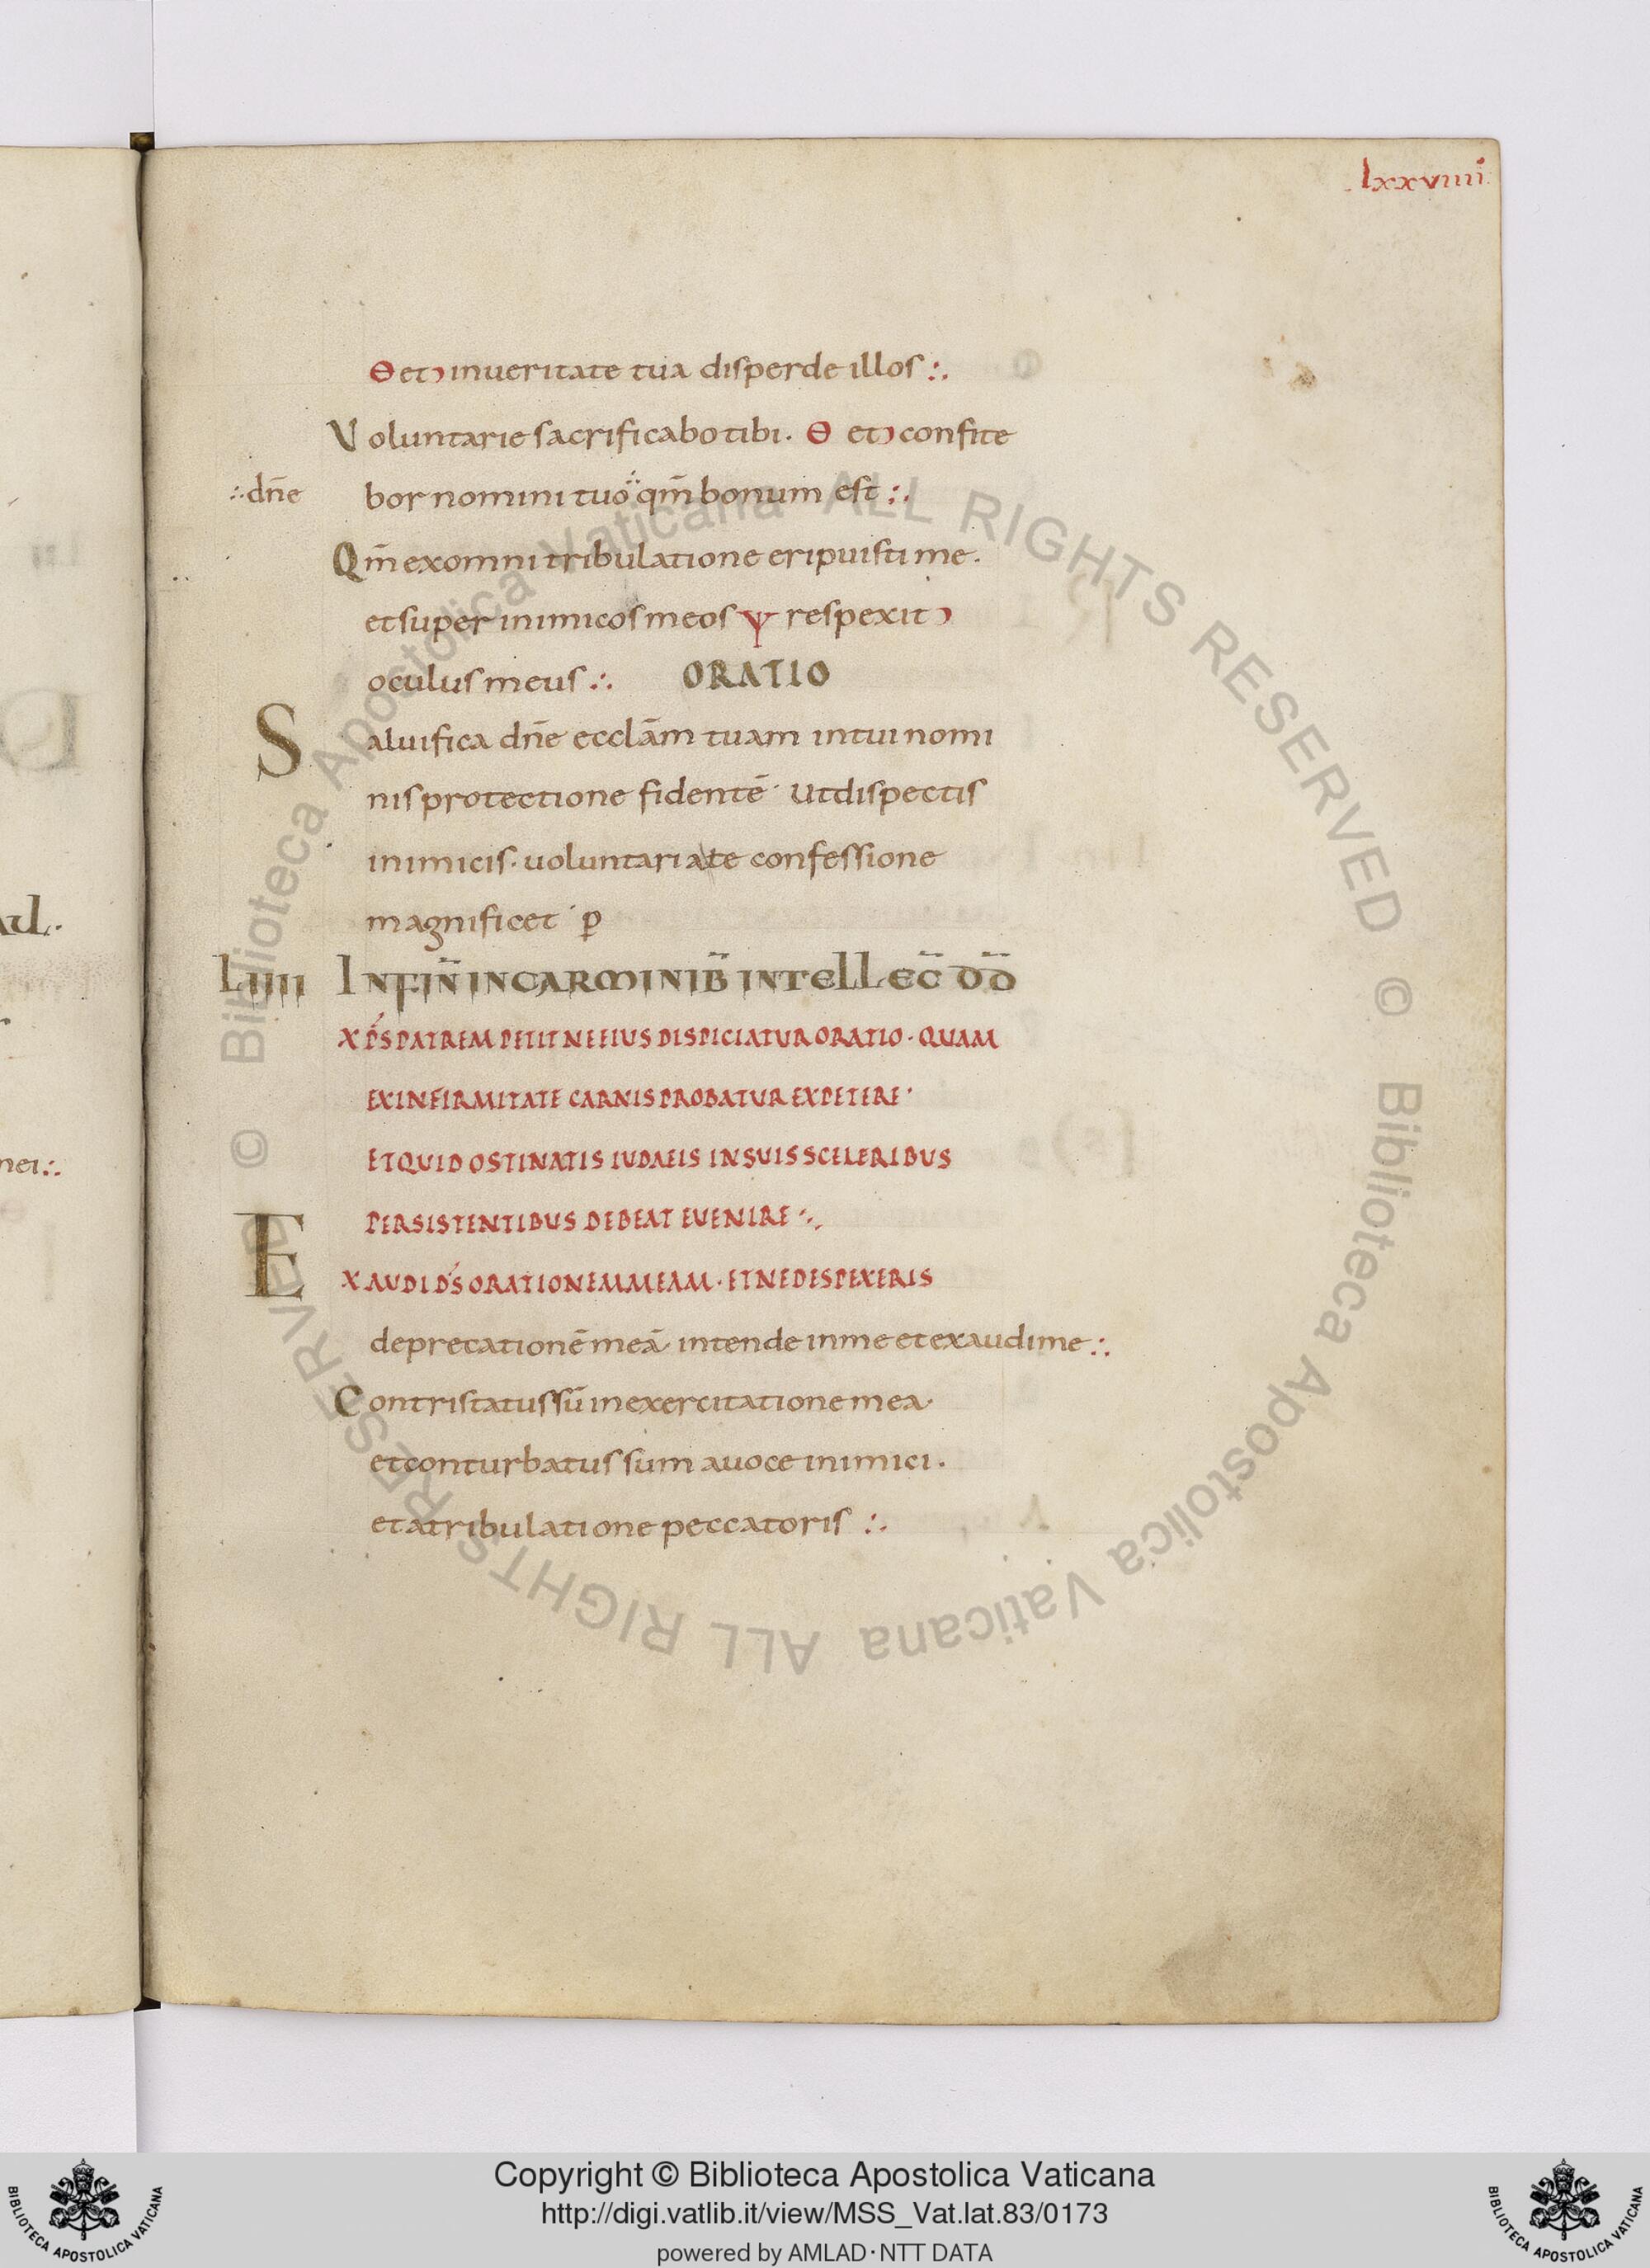 lxxviiii
Θ et in ueritate tua disperde illos :.
Voluntarie sacrificabo tibi. Θ et confite
:. dn̄e bor nomini tuo qm̄ bonum est :.
Qm̄ ex omni tribulatione eripuisti me.
et super inimicos meos ψ respexit
oculus meus :. ORATIO
Saluifica dn̄e ecclām tuam in tui nomi
nis protectione fidentē· ut dispectis
inimicis· uoluntariate confessione
magnificet· p
LIIII IN FIN̄ IN CARMINIB̄ INTELLEC̄ DD̄
XP̄S PATREM PETIT NE EIUS DISPICIATUR ORATIO· QUAM
EX INFIRMITATE CARNIS PROBATUR EXPETERE·
ET QUID OSTINATIS IUDAEIS IN SUIS SCELERIBUS
PERSISTENTIBUS DEBEAT EUENIRE :.
EXAUDI DS̄ ORATIONEM MEAM· ET NE DESPEXERIS
deprecationē meā intende in me et exaudi me :.
Contristatus sū in exercitatione mea·
et conturbatus sum a uoce inimici.
et a tribulatione peccatoris :.
nei :.
Copyright © Biblioteca Apostolica Vaticana
http://digi.vatlib.it/view/MSS_Vat.lat.83/0173
powered by AMLAD·NTT DATA
BIBLIOTECA APOSTOLICA VATICANA
BIBLIOTECA APOSTOLICA VATICANA
© Biblioteca Apostolica Vaticana ALL RIGHTS RESERVED © Biblioteca Apostolica Vaticana ALL RIGHTS RESERVED